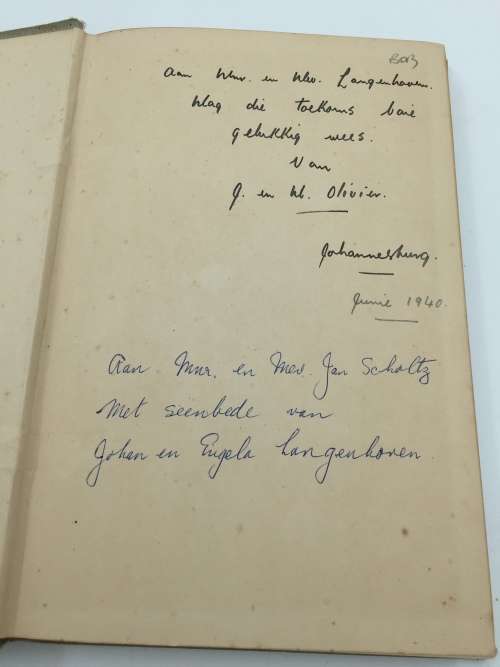 Aan Mnr. en Mev. Langenhoven.
Mag die toekoms baie
gelukkig wees.
Van
J. en M. Olivier.
Johannesburg.
Junie 1940.
Aan Mnr. en Mev. Jan Scholtz
Met seenbede van
Johan en Engela Langenhoven.